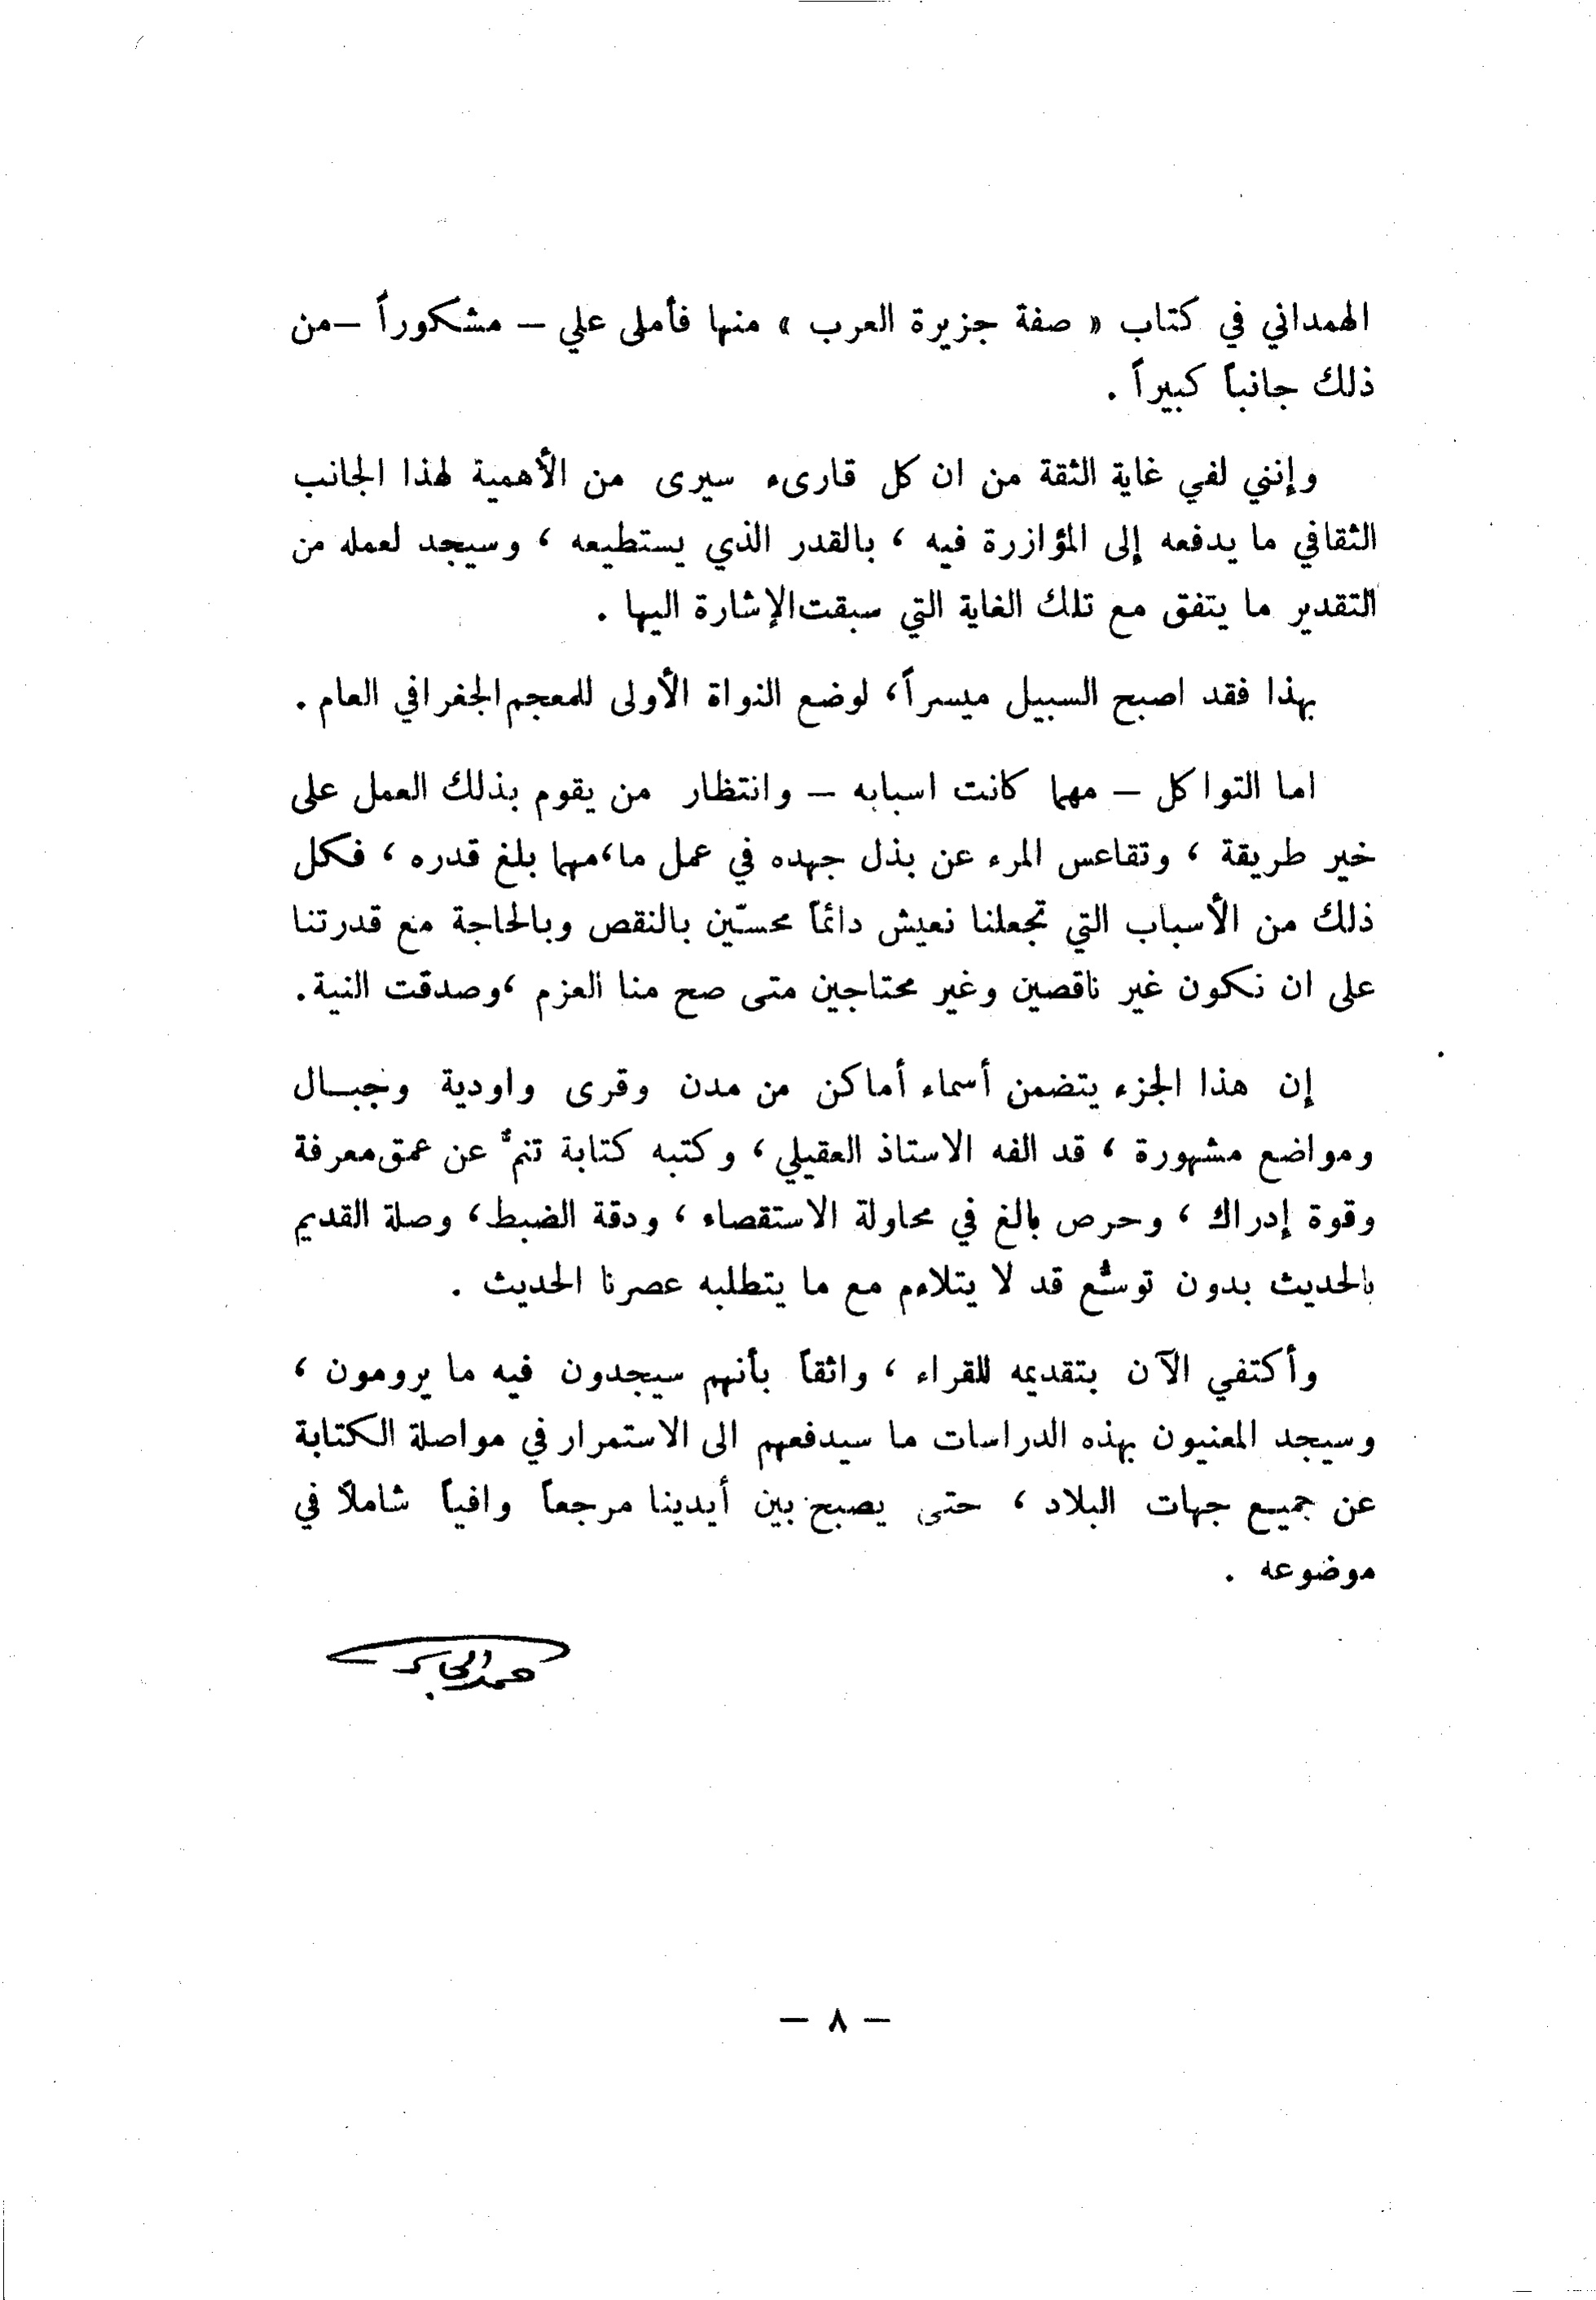 الهمداني في كتاب « صفة جزيرة العرب » منها فأملى علي – مشكوراً –من
ذلك جانباً كبيراً .
وإنني لفي غاية الثقة من ان كل قارىء سيرى من الأهمية لهذا الجانب
الثقافي ما يدفعه إلى المؤازرة فيه ، بالقدر الذي يستطيعه ، وسيجد لعمله من
التقدير ما يتفق مع تلك الغاية التي سبقت الإشارة اليها .
بهذا فقد اصبح السبيل ميسراً، لوضع النواة الأولى للمعجم الجغرافي العام .
اما التواكل – مهما كانت اسبابه – وانتظار من يقوم بذلك العمل على
خير طريقة ، وتقاعس المرء عن بذل جهده في عمل ما،مهما بلغ قدره ، فكل
ذلك من الأسباب التي تجعلنا نعيش دائماً محسّين بالنقص وبالحاجة مع قدرتنا
على ان نكون غير ناقصين وغير محتاجين متى صح منا العزم ،وصدقت النية.
إن هذا الجزء يتضمن أسماء أماكن من مدن وقرى واودية وجبـال
ومواضع مشهورة ، قد الفه الاستاذ العقيلي، وكتبه كتابة تنمُّ عن عمق معرفة
وقوة إدراك ، وحرص بالغ في محاولة الاستقصاء ، ودقة الضبط، وصلة القديم
بالحديث بدون توسُّع قد لا يتلاءم مع ما يتطلبه عصرنا الحديث .
وأكتفي الآن بتقديمه للقراء ، واثقاً بأنهم سيجدون فيه ما يرومون ،
وسيجد المعنيون بهذه الدراسات ما سيدفعهم الى الاستمرار في مواصلة الكتابة
عن جميع جهات البلاد ، حتى يصبح بين أيدينا مرجعاً وافياً شاملاً في
موضوعه .
حمد الجاسر
– ٨ –